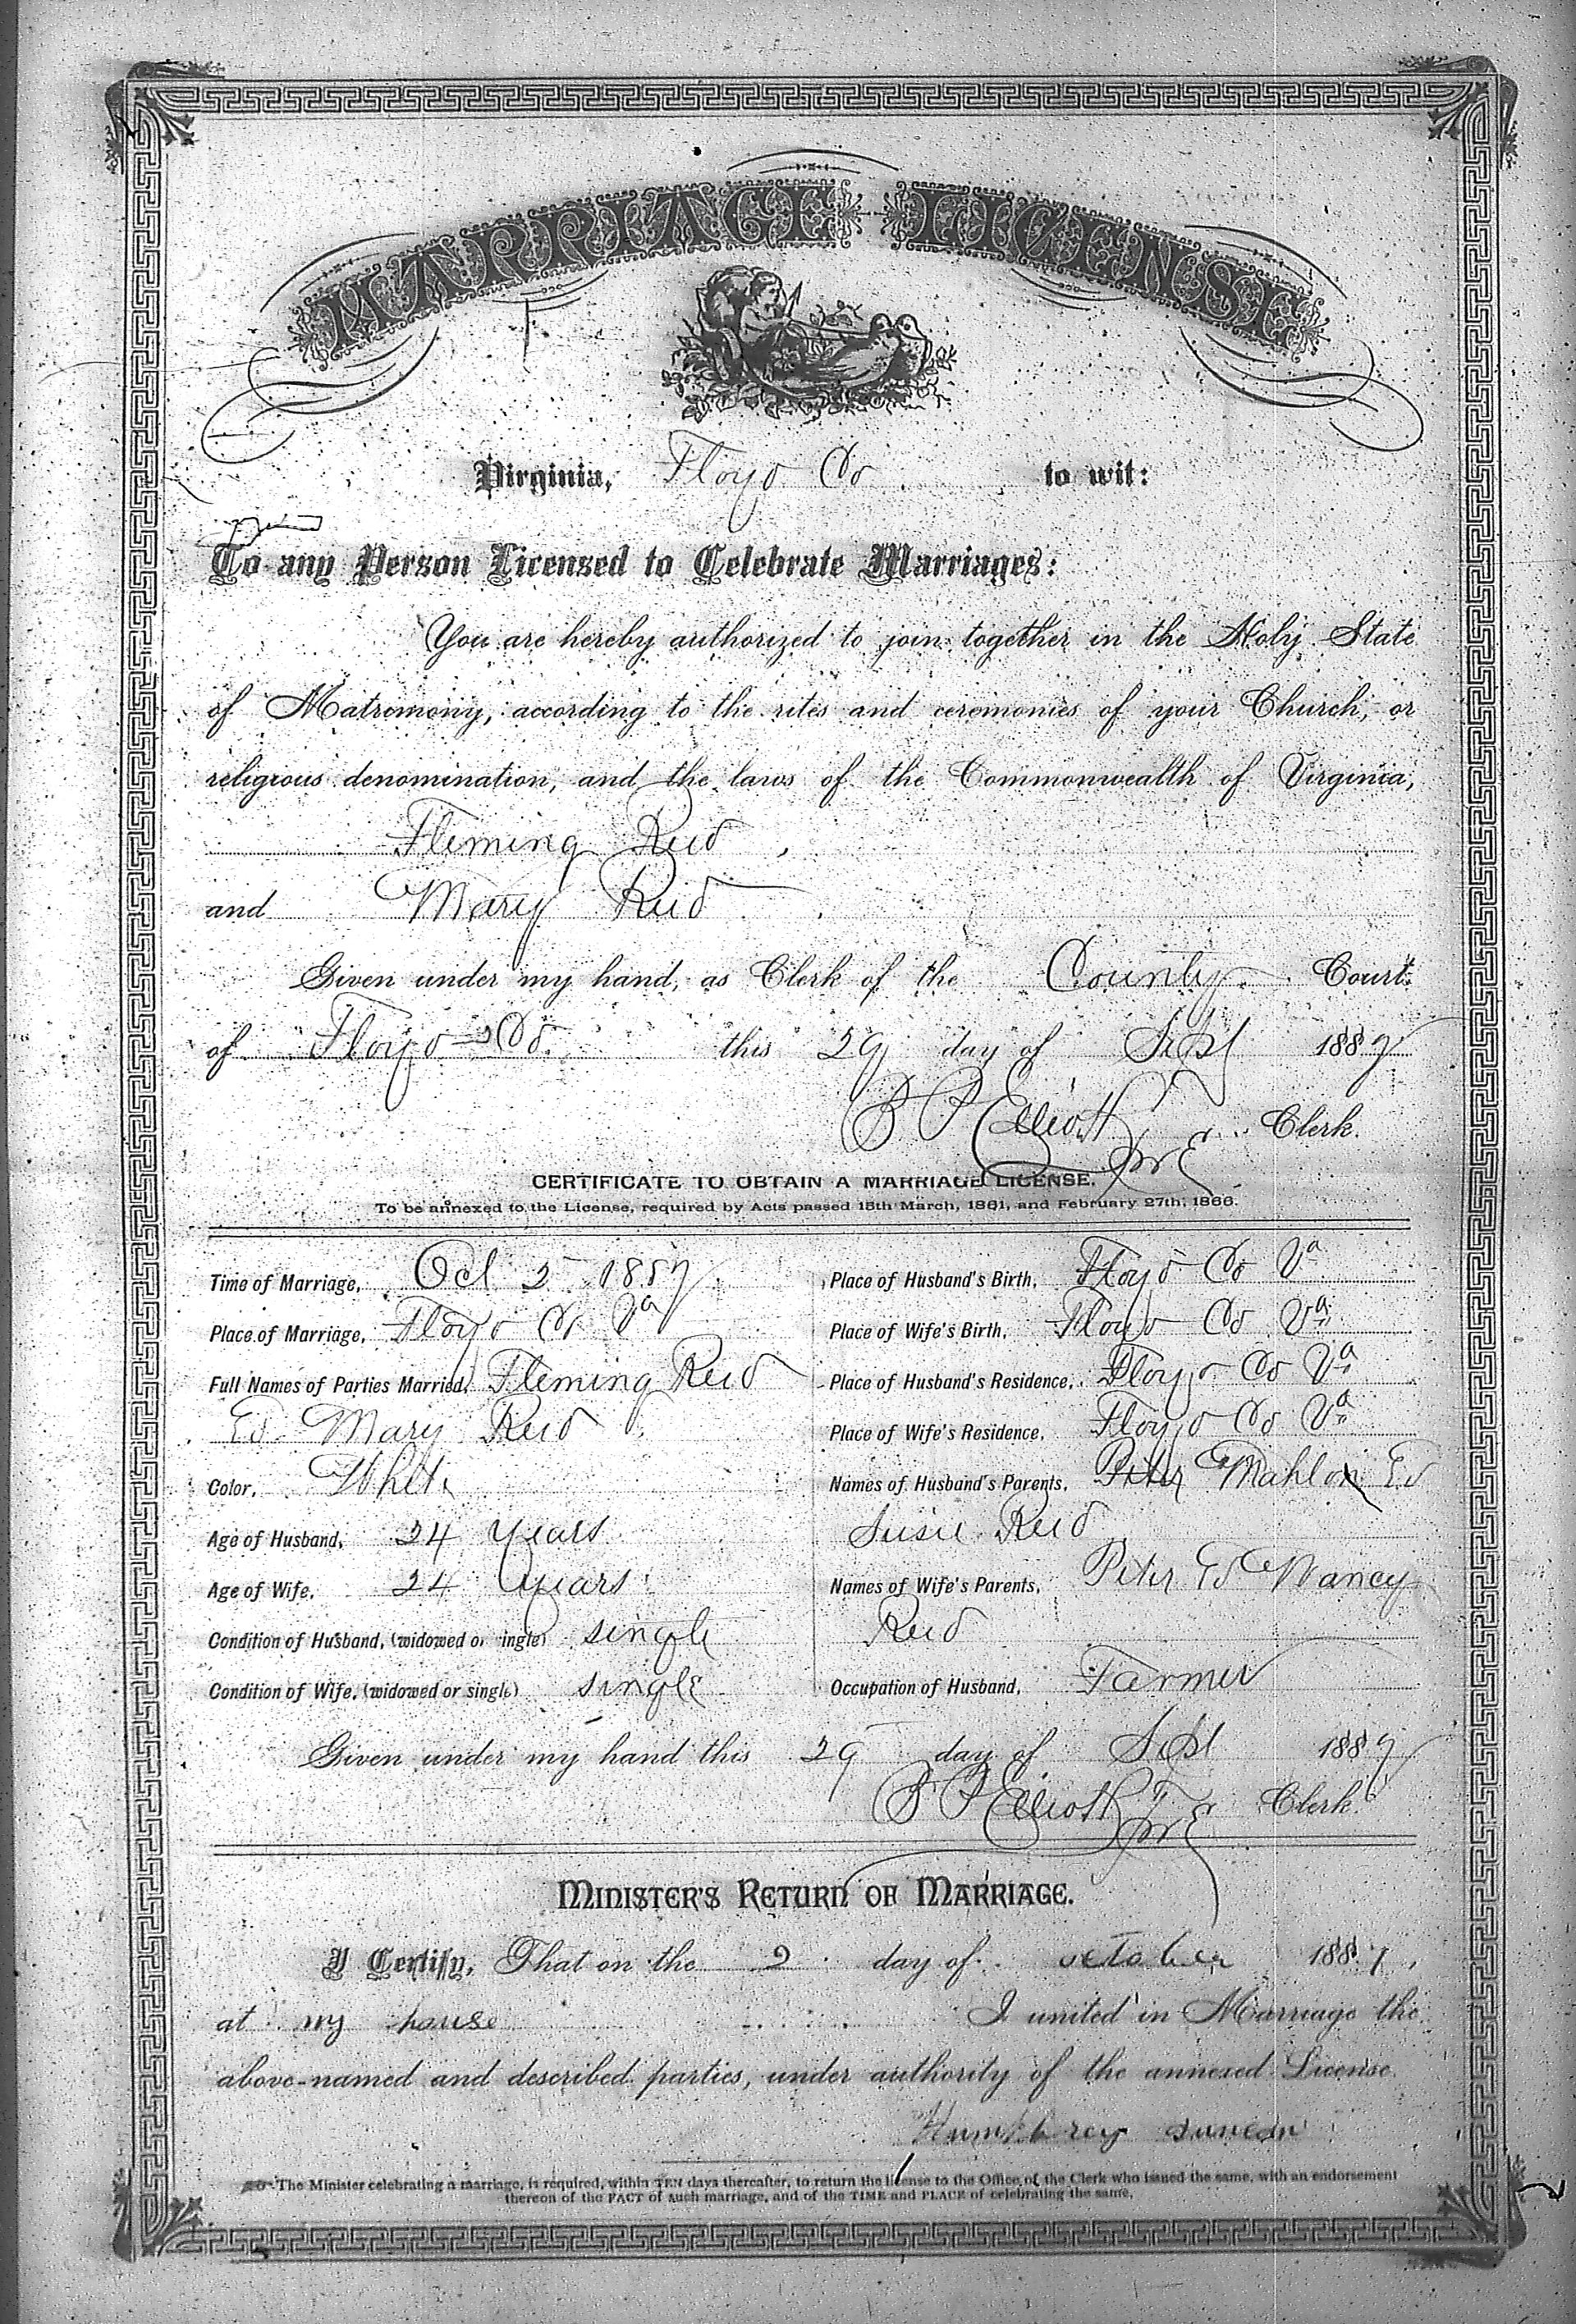 MARRIAGE LICENSE
Virginia, Floyd Co to wit:
To any Person Licensed to Celebrate Marriages:
You are hereby authorized to join together in the Holy State
of Matrimony, according to the rites and ceremonies of your Church, or
religious denomination, and the laws of the Commonwealth of Virginia,
Fleming Reid
and Mary Reid
Given under my hand, as Clerk of the County Court
of Floyd Co. this 29 day of Sept 1887
B P Elliott Clerk.
CERTIFICATE TO OBTAIN A MARRIAGE LICENSE.
To be annexed to the License, required by Acts passed 15th March, 1861, and February 27th, 1866.
Time of Marriage, Oct 2 1887
Place of Marriage, Floyd Co Va
Full Names of Parties Married, Fleming Reid
& Mary Reid
Color, White
Age of Husband, 24 years
Age of Wife, 24 years
Condition of Husband, (widowed or single) single
Condition of Wife, (widowed or single) single
Place of Husband's Birth, Floyd Co Va
Place of Wife's Birth, Floyd Co Va
Place of Husband's Residence, Floyd Co Va
Place of Wife's Residence, Floyd Co Va
Names of Husband's Parents, Mahlon &
Susie Reid
Names of Wife's Parents, Peter & Nancy
Reid
Occupation of Husband, Farmer
Given under my hand this 29 day of Sept 1887
B P Elliott Clerk.
MINISTER'S RETURN OF MARRIAGE.
I Certify, That on the 2 day of october 1887,
at my house I united in Marriage the
above-named and described parties, under authority of the annexed License.
Humphrey duncan
The Minister celebrating a marriage, is required, within TEN days thereafter, to return the license to the Office of the Clerk who issued the same, with an endorsement
thereon of the FACT of such marriage, and of the TIME and PLACE of celebrating the same.